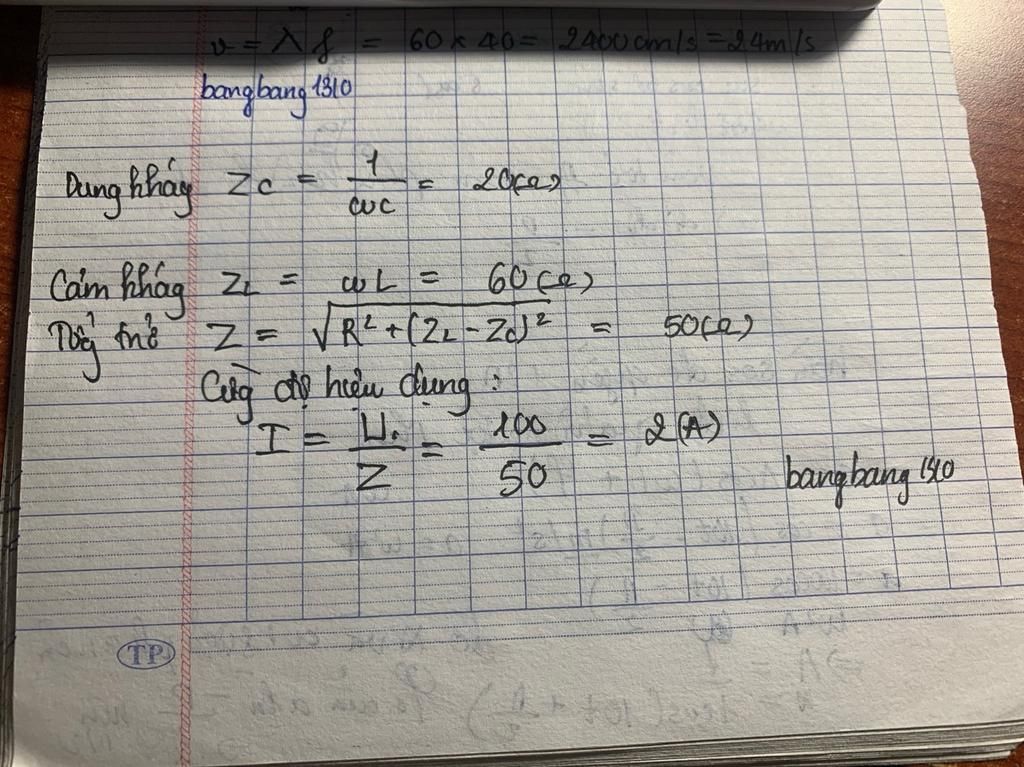 v = λ f = 60 x 40 = 2400 cm/s = 24 m/s
bangbang 1310
Dung kháng Zc = 1/ωC = 20(Ω)
Cảm kháng ZL = ωL = 60(Ω)
Tổng trở Z = √R² + (ZL - Zc)² = 50(Ω)
Cường độ hiệu dụng :
I = U/Z = 100/50 = 2(A)
bangbang 1310
TP